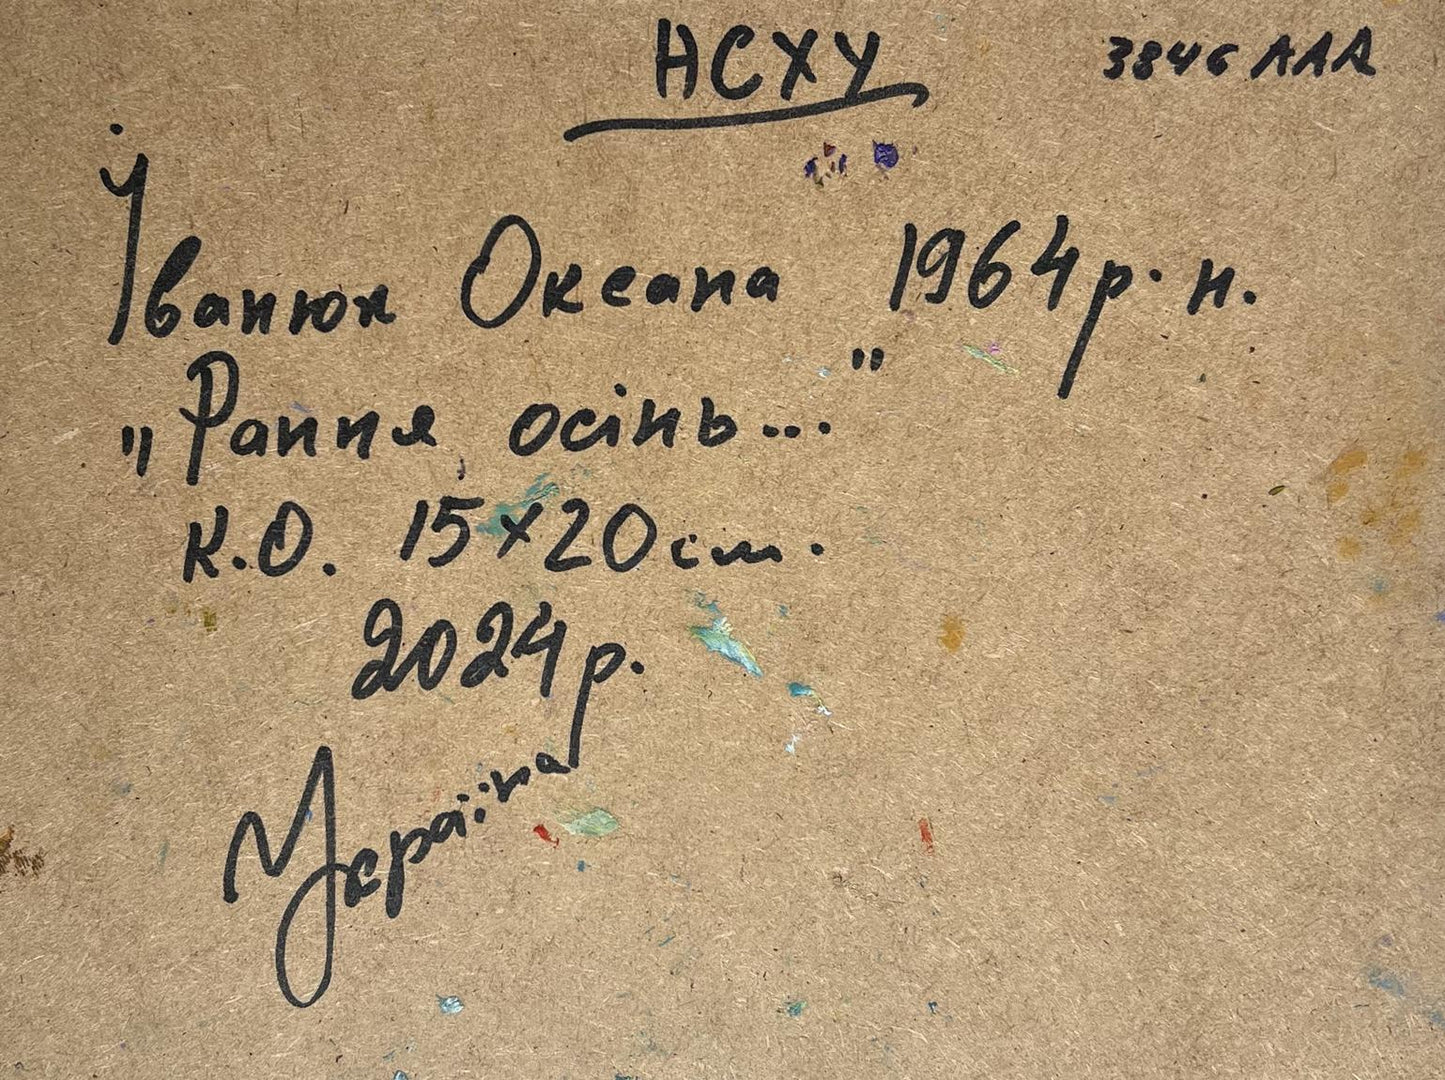 НСХУ
3846 ААА
Іванюк Оксана 1964 р. н.
„Рання осінь..."
К.О. 15×20 см.
2024 р.
Україна